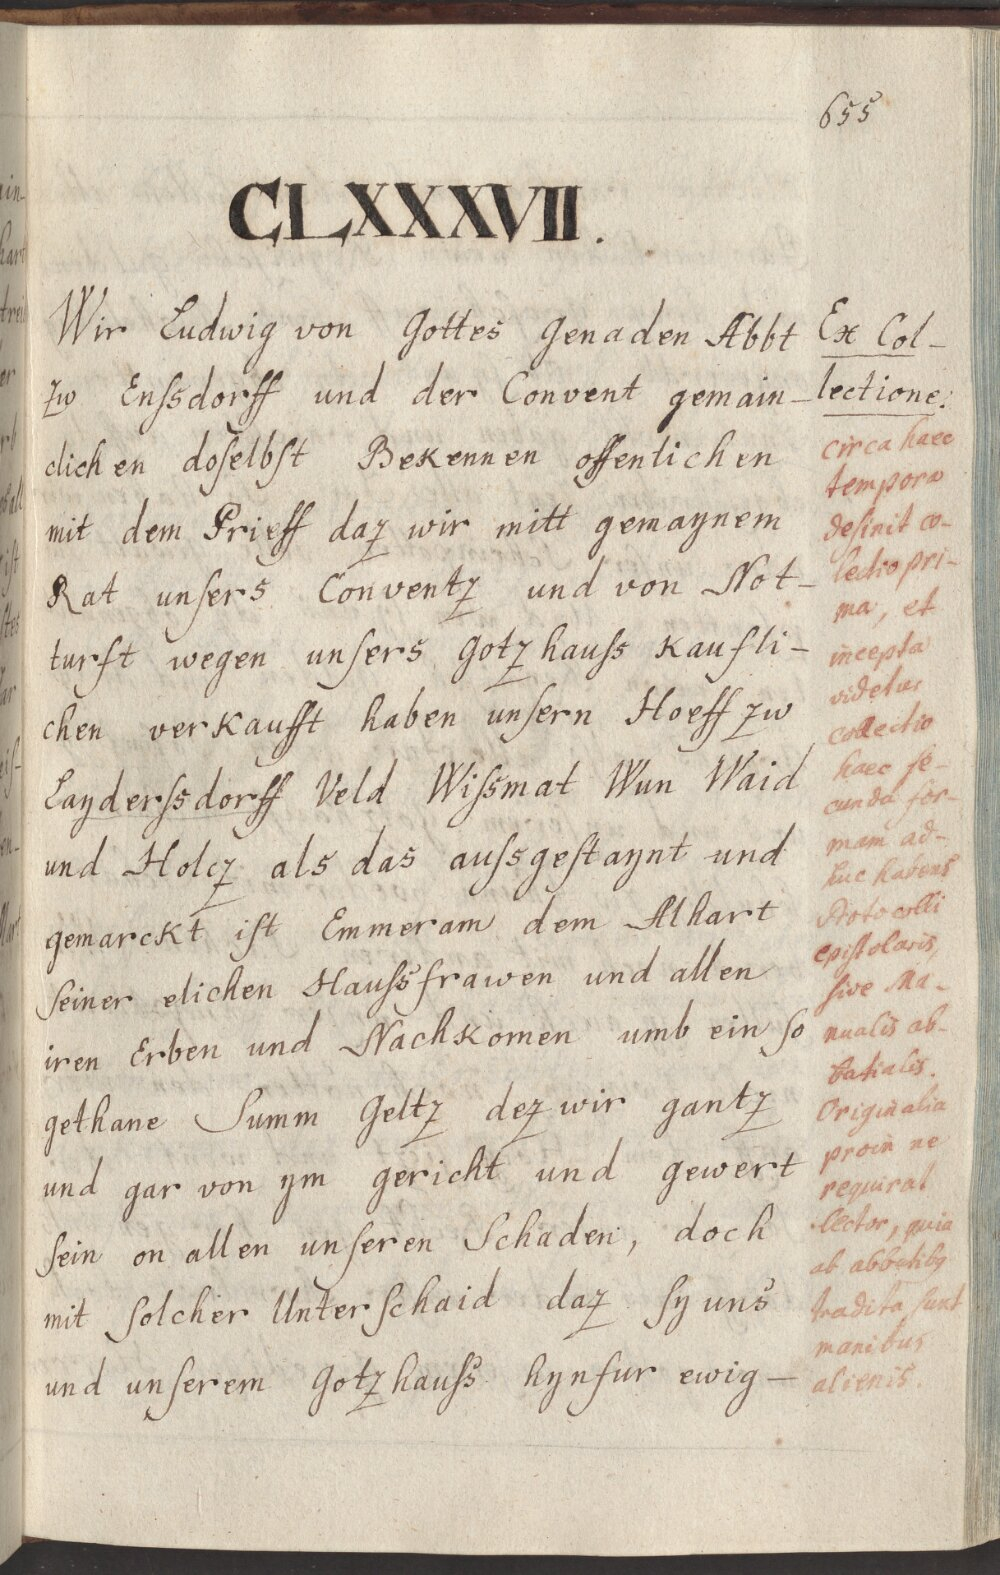 655
CLXXXVII.
Wir Ludwig von Gottes Genaden Abbt
zw Enssdorff und der Convent gemain-
clichen doselbst Bekennen offenlichen
mit dem Prieff daz wir mitt gemaynem
Rat unsers Conventz und von Not-
turft wegen unsers Gotzhauss kaufli-
chen verkaufft haben unsern Hoeff zw
Layderssdorff Veld Wissmat Wun Waid
und Holcz als das aussgestaynt und
gemarckt ist Emmeram dem Alhart
seiner elichen Haussfrawen und allen
iren Erben und Nachkomen umb ein so
gethane Summ Geltz dez wir gantz
und gar von ym gericht und gewert
sein on allen unseren Schaden, doch
mit solcher Unterschaid daz sy uns
und unserem Gotzhauss hynfur ewig-
Ex Col-
lectione.
circa haec
tempora
desinit co-
lectio pri-
ma, et
incepta
videtur
collectio
haec se-
cunda for-
mam ad-
huc habens
Protocolli
epistolaris,
sive Ma-
nualis ab-
batialis.
Originalia
proin ne
requirat
lector, quia
ab abbatibq
tradita sunt
manibus
alienis.